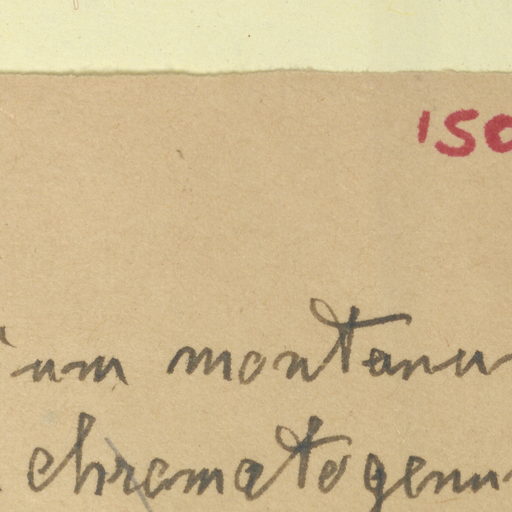 150
ium montanu
chromatogenu